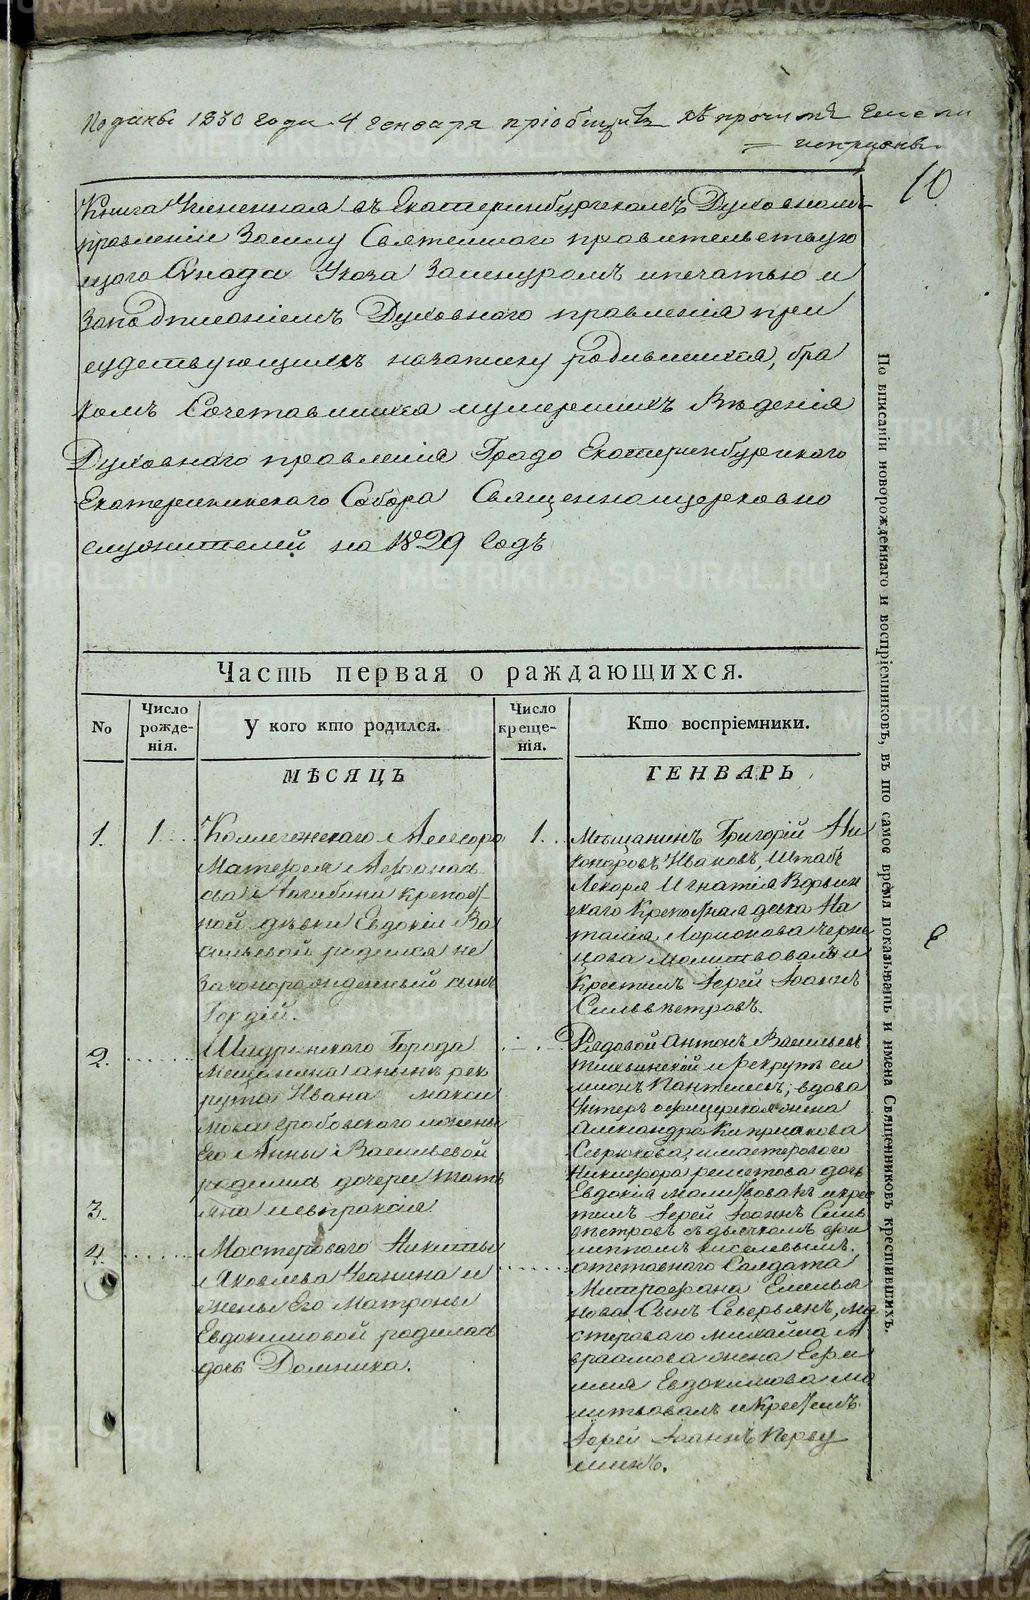 Подана 1830 года 4 генваря приобщить къ прочимъ
10
Книга Чиненная въ Екатеринбургскомъ Духовномъ
правленіи Засилу Святейшаго правительствую
щаго Синода Указа Зашнуромъ ипечатью и
Заподписаніемъ Духовнаго правленія при
судствующихъ назаписку родившихся, бра
комъ Сочетавшихся иумершихъ Вѣденія
Духовнаго правленія Градо Екатеринбургскаго
Екатерининскаго Собора Священноицерковно
служителей на 1829 Годъ
Часть первая о раждающихся.
No
Число рожде-нія.
У кого кто родился.
Число креще-нія.
Кто воспріемники.
МѢСЯЦЪ
ГЕНВАРЬ
1. 1
Коллежскаго Ассесора
Нагибина крепост
ной дѣвки Евдокіи Ва
сильевой родился не
законорожденный сынъ
Гордій.
1.
Мѣщанинъ Григорій Ни
каноровъ Ивановъ, Штабъ
Лекаря Игнатія
скаго Крепостная девка На
талія Ларионова
молитвовалъ и
Крестилъ Іерей Іоаннъ
Сильвѣстровъ.
2.
Шадринскаго Города
мещанина
рута Ивана Макси
мова Гробовскаго ижены
Его Анны Васильевой
родились дочери Тать
яна иевпраксія
3.
Рядовой Антонъ Васильевъ
и рекрутъ Си
мионъ Пантелеевъ; вдова
Унтеръ офицерская жена
Александра Киприанова
Севрюкова; имастероваго
Никифора решетова дочь
Евдокія молитвовалъ икрес
тилъ Іерей Іоаннъ Силь
вѣстровъ сдьячкомъ Фи
липпомъ киселевымъ.
4.
Мастероваго Никиты
Яковлева Чеканина и
жены Его Матроны
Евдокимовой родилась
дочь Домника.
отставнаго Солдата
Митрофана Емелья
нова Сынъ Северьянъ, ма
стероваго михайла А
враамова жена Ефи
мия Евдокимова мо
литвовалъ иКрестилъ
Іерей Іоаннъ Перву
шинъ.
По вписаніи новорожденнаго и воспріемниковъ, въ то самое время показывать и имена Священниковъ крестившихъ.
METRIKI.GASO-URAL.RU